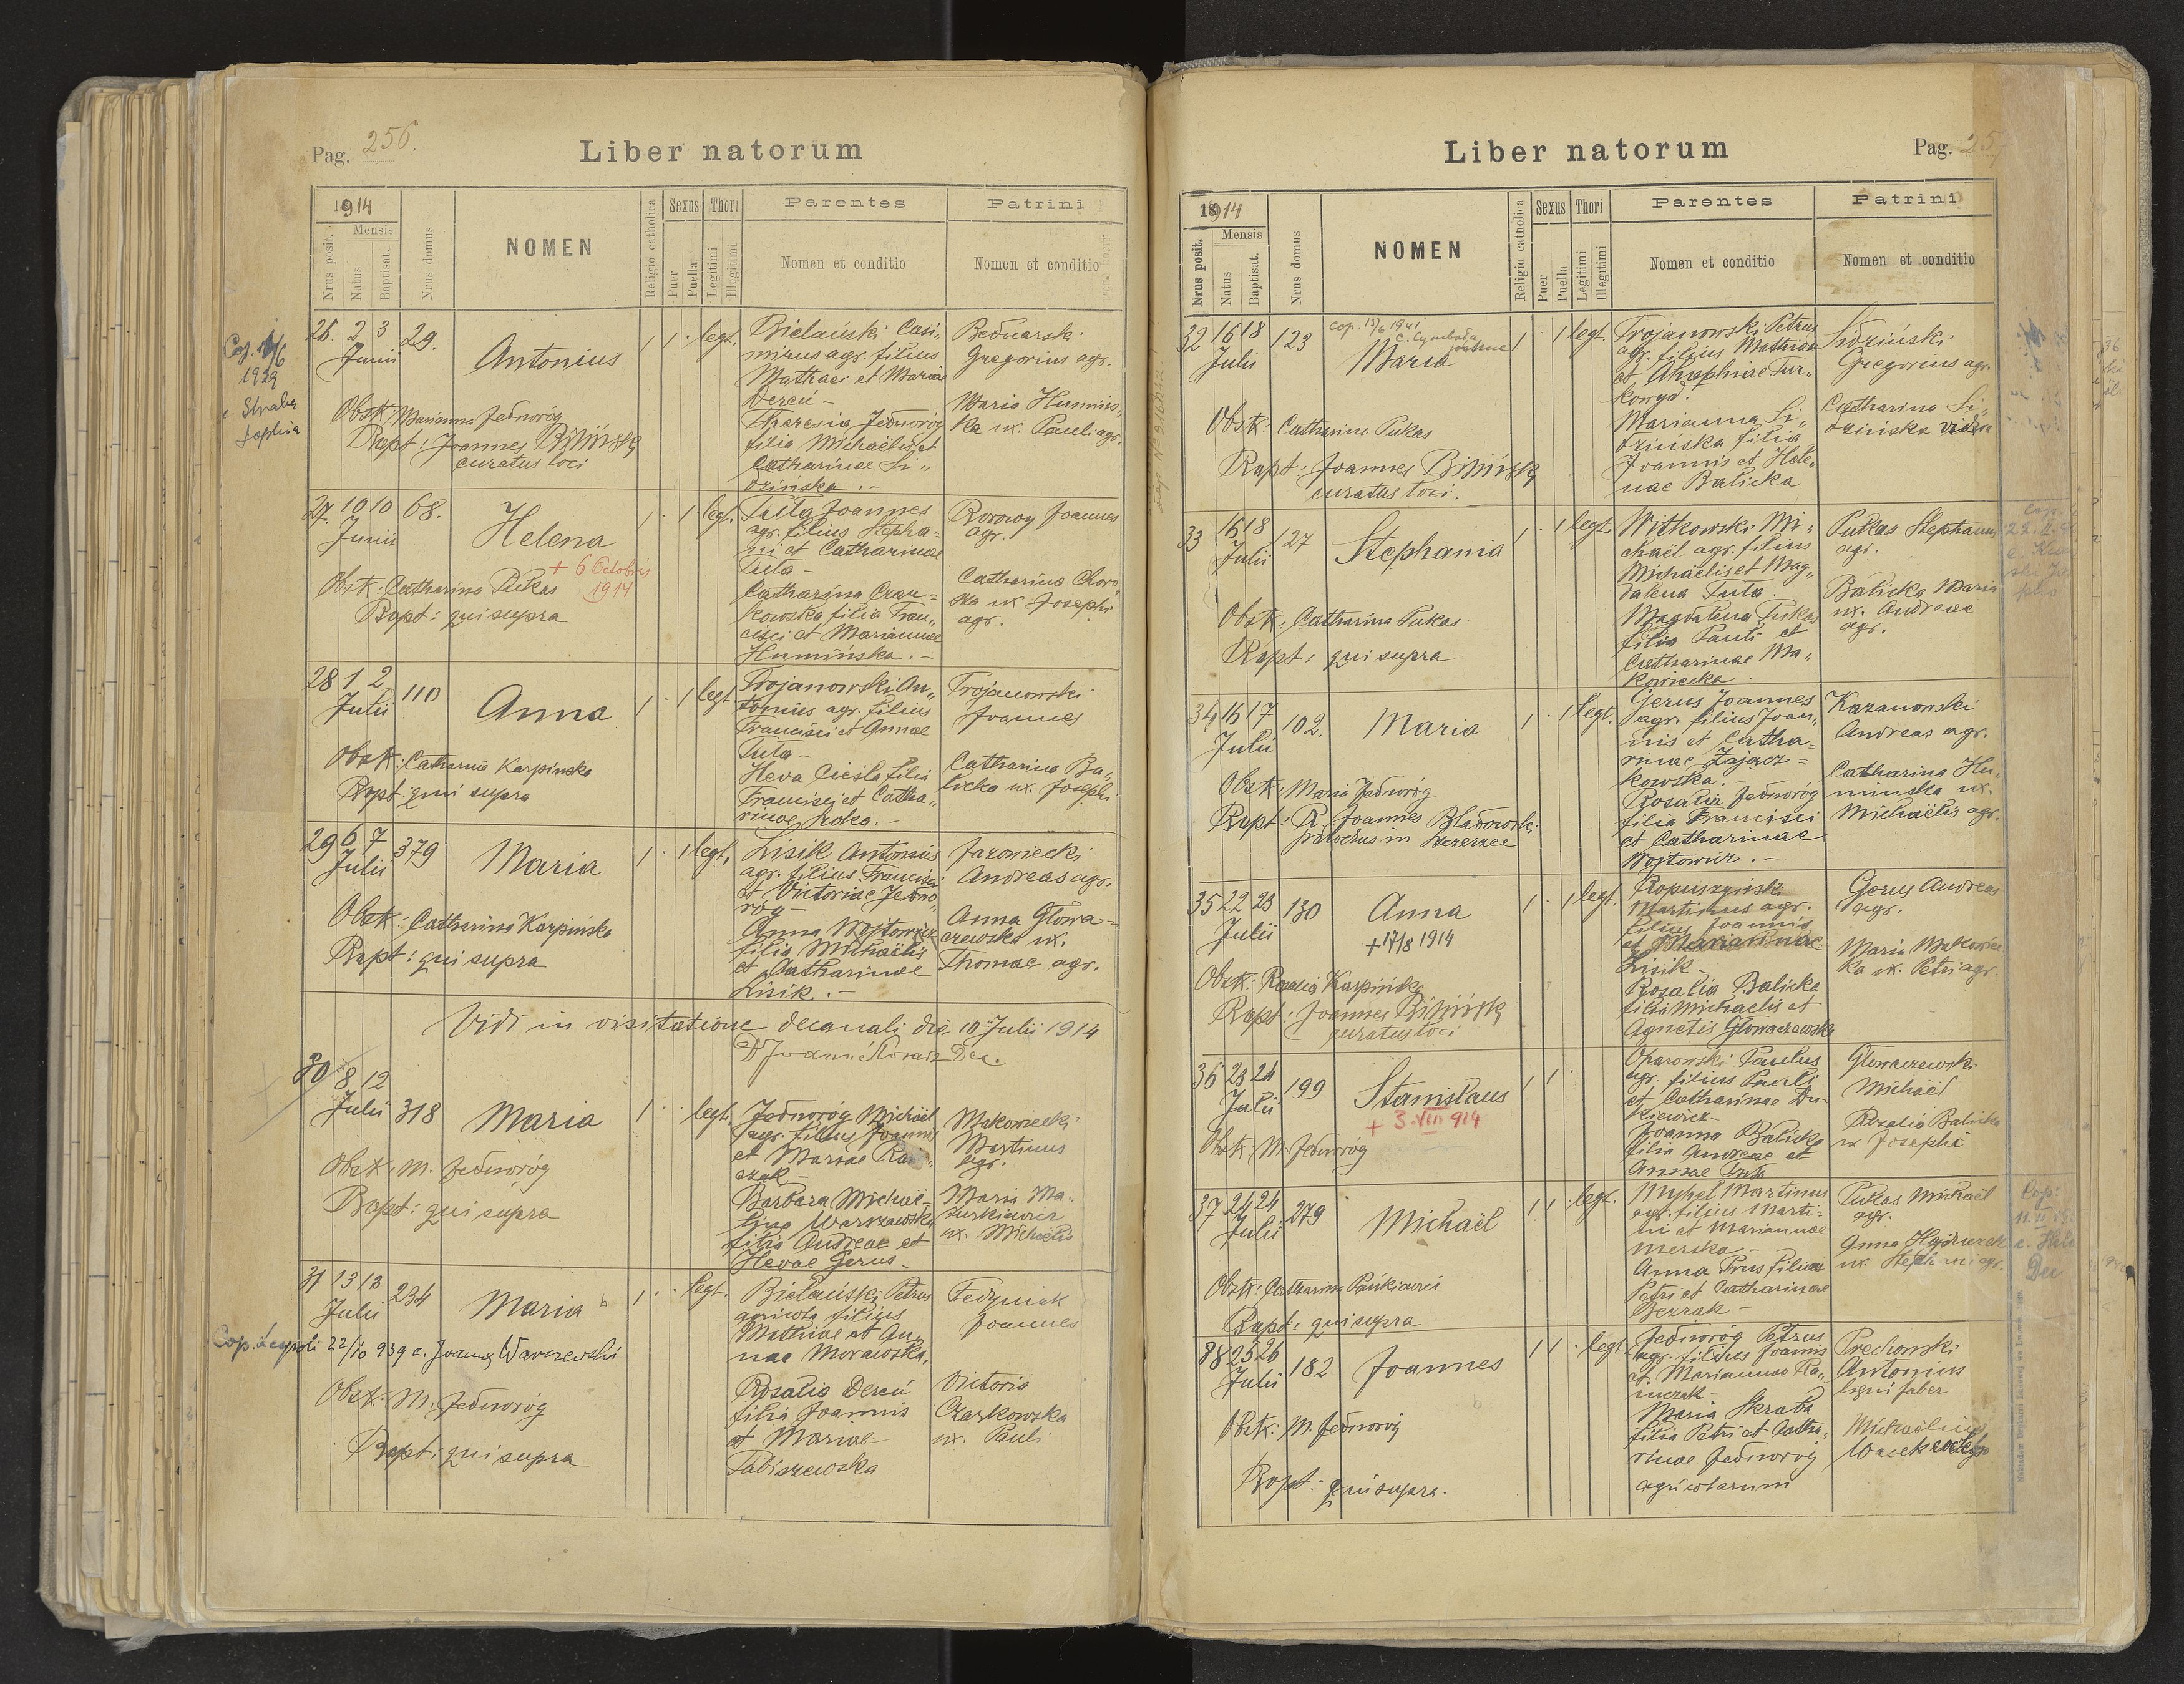 Pag. 256.
Liber natorum
1914
Nrus posit.
Mensis
Natus
Baptisat.
Nrus domus
NOMEN
Religio catholica
Sexus
Puer
Puella
Thori
Legitimi
Illegitimi
Parentes
Nomen et conditio
Patrini
Nomen et conditio
Cop.
1929
c. Skraba
Sophia
26. 2 3 29.
Junii
Antonius
1 1 · legt.
Obstk: Marianna Jednoróg
Bapt: Joannes Biliński
curatus loci
Bielański Casi„
mirus agr. filius
Mathaei et Mariae
Dereń –
Theresia Jednoróg
filia Michaëlis et
Catharinae Si„
dzińska . –
Bednarski
Gregorius agr.
Maria Humińs„
ka ux. Pauli agr.
27. 10 10 68.
Junii
Helena
+ 6 Octobris
1914
1 · 1 legt.
Obstk: Catharina Pukas
Bapt: qui supra
Tuta Joannes
agr. filius Stepha=
ni et Catharinae
Tuta –
Catharina Czar=
kowska filia Fran„
cisci et Mariannae
Humińska . –
Borowy Joannes
agr.
Catharina
ux Josephi
agr.
28 1 2 110
Julii
Anna
1 · 1 legt
Obstk: Catharina Karpińska
Bapt: qui supra
Trojanowski An„
tonius agr. filius
Francisci et Annae
Tuta –
Heva Cieśla filia
Francisci et Catha„
rinae
Trojanowski
Joannes
Catharina Ba„
licka ux. Josephi
29 6 7 379
Julii
Maria
1 · 1 legt,
Obstk: Catharina Karpińska
Bapt: qui supra
Lisik Antonius
agr. filius Francisci
et Victoriae Jedno„
róg –
Anna Wojtowicz
filia Michaëlis
et Catharinae
Lisik . –
Jazowiecki
Andreas agr.
Anna Głowa=
czewska ux.
Thomae agr.
Vidi in visitatione decanali die 10 Julii 1914
Dec.
30 8 12 318
Julii
Maria
1 · · legt.
Obstk: M. Jednoróg
Bapt: qui supra
Jednoróg Michaël
agr. filius Joannis
et Mariae
Barbara Michaë„
lina Warszawska
filia Andreae et
Hevae Gerus –
Makowiecki
Martinus
agr.
Maria Ma„
zurkiewicz
ux. Michaëlis
31 13 13 234
Julii
Maria
1 · · legt.
Cop. Leopoli 22/10 939 c. Joannes Warszewski
Obstk: M. Jednoróg
Bapt: qui supra
Bielański Petrus
agricola filius
Mathiae et An„
nae Morawska,
Rosalia Dereń
filia Joannis
et Mariae
Tabiszewska
Fedyniak
Joannes
Victoria
Czarkowska
ux. Pauli
Liber natorum
Pag. 257
1914
Nrus posit.
Mensis
Natus
Baptisat.
Nrus domus
NOMEN
Religio catholica
Sexus
Puer
Puella
Thori
Legitimi
Illegitimi
Parentes
Nomen et conditio
Patrini
Nomen et conditio
32 16 18 123
Julii
cop. 17/6 1941
c. Cymbała
Maria
1 · 1 legt.
Obstk: Catharina Pukas
Bapt: Joannes Biliński
curatus loci.
Trojanowski Petrus
agr. filius Mathiae
et Tur„
kowyd.
Marianna Si„
dzińska filia
Joannis et Hele„
nae Balicka
Sidziński
Gregorius agr.
Catharina Si„
dzińska vidua
33 16 18 127
Julii
Stephania
1 · 1 legt.
Obstk: Catharina Pukas
Bapt: qui supra
Witkowski Mi„
chaël agr. filius
Michaëlis et Mag„
dalena Tuta.
Magdalena Pukas
filia Pauli et
Catharinae Ma„
kowiecka
Pukas Stephanus
agr.
Balicka Maria
ux. Andreae
agr.
cop.
34 16 17 102.
Julii
Maria
1 · 1 legt.
Obstk: Maria Jednoróg
Bapt: R. Joannes Bladowski
parochus in Szczerzec
Gerus Joannes
agr. filius Joan„
nis et Catha=
rinae Zającz=
kowska. –
Rosalia Jednoróg
filia Francisci
et Catharinae
Wojtowicz . –
Kazanowski
Andreas agr.
Catharina Hu„
minska ux.
Michaëlis agr.
35 22 23 130
Julii
Anna
+ 17/8 1914
1 · 1 legt.
Obstk: Rosalia Karpińska
Bapt: Joannes Biliński
curatus loci
Kopuszyński
Martinus agr.
filius Joannis
et Mariannae
Lisik –
Rosalia Balicka
filia Michaëlis et
Agnetis Głowaczewska
Gerus Andreas
agr.
Maria Makowiec
ka ux. Petri agr.
36 23 24 199
Julii
Stanislaus
+ 3 VIII 914
1 1 ·
Obstk: M. Jednoróg
Oparowski Paulus
agr. filius Pauli
et Catharinae Du-
kiewicz –
Joanna Balicka
filia Andreae et
Annae Tuta
Głowaczewski
Michaël
Rosalia Balicka
ux Josephi
37 24 24 279
Julii
Michaël
1 1 · legt.
Obstk: Catharina
Bapt: qui supra
Myhel Martinus
agr. filius Marti=
ni et Mariannae
Merska –
Anna Prus filia
Petri et Catharinae
Berzak –
Pukas Michaël
agr.
Anna
ux. Stephani agr.
Cop:
38 25 26 182
Julii
Joannes
1 1 · legt.
Obstk: M. Jednoróg
Bapt: qui supra.
Jednoróg Petrus
agr. filius Joannis
et Mariannae
Maria Skraba
filia Petri et Catha„
rinae Jednoróg
agricolarum
Prechowski
Antonius
ligni faber
Michaëlina